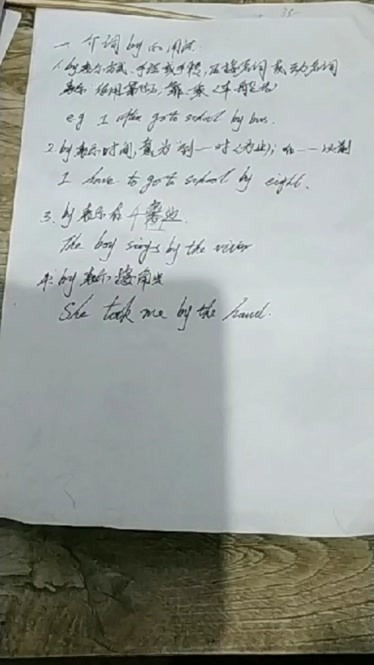 一 介词 by 的用法
1. by 表示方式、手段或手段, 后接名词或动名词
表示 使用某种
e.g I often go to school by bus.
2. by 表示时间, 意为 到…时(为止); 在…以前
I have to go to school by eight.
3. by 表示在…旁边
The boy sings by the river
4. by 表示 接
She took me by the hand.